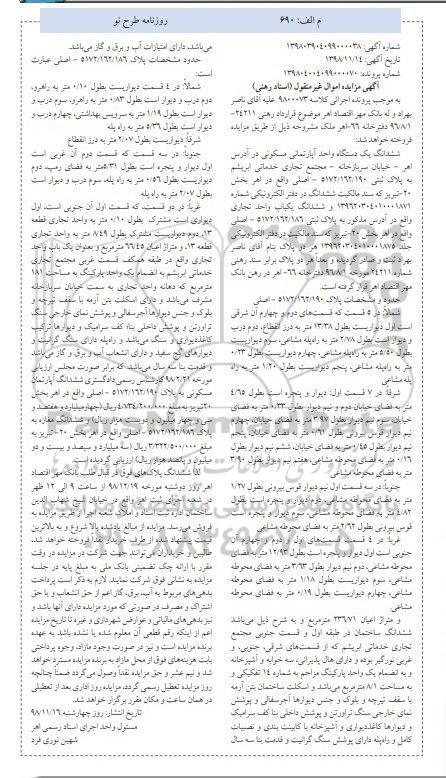 م الف: ۶۹۰
روزنامه طرح نو
شماره آگهی: ۱۳۹۸۰۳۹۰۴۰۹۹۰۰۰۰۳۸
تاریخ آگهی: ۱۳۹۸/۱۱/۱۴
شماره پرونده: ۱۳۹۸۰۴۰۰۴۰۹۹۰۰۰۰۷۰
آگهی مزایده اموال غیرمنقول (اسناد رهنی)
به موجب پرونده اجرائی کلاسه ۹۸۰۰۰۷۳ علیه آقای ناصر
بهراد و له بانک مهر اقتصاد اهر موضوع قرارداد رهنی ۲۴۲۱۱-
۹۶/۸/۱ دفترخانه ۶۶-اهر ملک مشروحه ذیل از طریق مزایده
فروخته خواهد شد:
ششدانگ یک دستگاه واحد آپارتمانی مسکونی در آدرس
اهر - خیابان سربازخانه - مجتمع تجاری خدماتی ابریشم
به پلاک ثبتی ۵۱۷۲/۱۶۲/۱۹۰ - اصلی واقع در اهر بخش
۲۰-تبریز که سند مالکیت ششدانگ در دفتر الکترونیکی شماره
۱۳۹۶۲۰۳۰۴۰۱۰۰۰۱۸۷۱ و ششدانگ یکباب واحد تجاری
واقع در آدرس مذکور به پلاک ثبتی ۵۱۷۲/۱۶۲/۱۸۶ - اصلی
واقع در اهر بخش ۲۰-تبریز که سند مالکیت در دفتر الکترونیکی
جلد ۱۳۹۶۲۰۳۰۴۰۱۰۰۰۱۸۷۵ هر دو پلاک بنام آقای ناصر
بهراد ثبت و صادر گردیده و بعداً هر دو پلاک برابر سند رهنی
شماره ۲۴۲۱۱ مورخه ۹۶/۸/۱ دفترخانه ۶۶- اهر در رهن بانک
مهر اقتصاد اهر قرار گرفته است.
حدود و مشخصات پلاک ۵۱۷۲/۱۶۲/۱۹۰ - اصلی
شمالاً: در ۵ قسمت که قسمت‌های دوم و چهارم آن شرقی
است اول دیواریست بطول ۱۳/۳۸ متر به درز انقطاع، دوم درب
و دیوار است بطول ۲/۷۸ متر به راه‌پله مشاعی، سوم دیواریست
بطول ۵/۵۰ متر به راه‌پله مشاعی، چهارم دیواریست بطول ۰/۲۳
متر به راه‌پله مشاعی، پنجم دیواریست بطول ۱/۲۰ متر به راه
پله مشاعی
شرقاً: در ۷ قسمت اول: دیوار و پنجره است بطول ۴/۶۵
متر به فضای خیابان دوم و نیم دیوار بطول ۰/۳۳ متر به فضای
خیابان، سوم نیم دیوار بطول ۳/۹۷ متر به فضای خیابان، چهارم
نیم دیوار قوس بیرونی بطول ۰/۶۱ متر به فضای خیابان، پنجم
نیم دیوار بطول ۰/۴۵ متر به فضای خیابان، ششم نیم دیوار بطول
۰/۱۶ متر به فضای محوطه مشاعی، هفتم نیم دیوار بطول ۳/۹۰
متر به فضای محوطه مشاعی
جنوباً: در سه قسمت اول نیم دیوار قوس بیرونی بطول ۱/۲۷
متر به فضای محوطه مشاعی، دوم دیوار و پنجره است بطول
۴/۸۲ متر به فضای محوطه مشاعی، سوم دیوار و پنجره است
قوس بیرونی بطول ۲/۶۲ متر به فضای محوطه مشاعی
غرباً: در ۴ قسمت که قسمت‌های اول و دوم و چهارم آن
جنوبی است اول دیوار و پنجره است بطول ۱۲/۹۳ متر به فضای
محوطه مشاعی، دوم نیم دیوار بطول ۳/۶۳ متر به فضای محوطه
مشاعی، سوم دیواریست بطول ۱/۱۸ متر به فضای محوطه
مشاعی، چهارم دیواریست بطول ۰/۱۹ متر به فضای محوطه
مشاعی
و متراژ اعیان ۲۳۶/۷۱ مترمربع و به شرح ذیل می‌باشد
ششدانگ ساختمان در طبقه اول و قسمت جنوبی مجتمع
تجاری خدماتی ابریشم که از قسمت‌های شرقی، جنوبی، و
غربی نورگیر بوده و دارای هال پذیرائی، سه خوابه و آشپزخانه
و به انضمام یک واحد پارکینگ مزاحم به شماره ۱۴ تفکیکی و
به مساحت ۸/۱ مترمربع می‌باشد و اسکلت ساختمان بتن آرمه
با سقف تیرچه و بلوک و جنس دیوارها آجرسفالی و پوشش
نمای خارجی سنگ تراورتن و پوشش داخلی بنا کف سرامیک
و دیوارها کاغذدیواری و آشپزخانه با کابینت بندی و نصبیات
کامل و راه‌پله دارای پوشش سنگ گرانیت و قدمت بنا سه سال
می‌باشد، دارای امتیازات آب و برق و گاز می‌باشد.
حدود مشخصات پلاک ۵۱۷۲/۱۶۲/۱۸۶ - اصلی عبارت
است:
شمالاً: در ۴ قسمت دیواریست بطول ۰/۱۰ متر به راهرو،
دوم درب و دیوار است بطول ۰/۸۳ متر به راهرو، سوم درب و
دیوار است بطول ۱/۱۹ متر به سرویس بهداشتی، چهارم درب و
دیوار است بطول ۵/۳۶ متر به راه پله
شرقاً: دیواریست بطول ۲/۰۷ متر به درز انقطاع
جنوباً: در سه قسمت که قسمت دوم آن غربی است
اول دیوار و پنجره است بطول ۵/۳۱متر به فضای رمپ، دوم
دیواریست بطول ۰/۵۶ متر به راه پله، سوم درب و دیوار است
بطول ۲/۰۷ متر به راه پله
غرباً: در دو قسمت، که قسمت اول آن جنوبی است، اول
دیواری است مشترک بطول ۰/۱۰ متر به واحد تجاری قطعه
۱۳، دوم دیواریست مشترک بطول ۸/۴۹ متر به واحد تجاری
قطعه ۱۳، و متراژ اعیان ۶۶/۴۵ مترمربع و بعنوان یک باب واحد
تجاری واقع در طبقه همکف قسمت غربی مجتمع تجاری
خدماتی ابریشم به انضمام یک واحد پارکینگ به مساحت ۱۸۱
مترمربع که دهانه واحد تجاری به سمت خیابان سربازخانه
مشرف می‌باشد و دارای اسکلت بتن آرمه با سقف تیرچه و
بلوک و جنس دیوارها آجرسفالی و پوشش نمای خارجی سنگ
تراورتن و پوشش داخلی بنا: کف سرامیک و دیوارها ترکیب
کاغذدیواری و سنگ می‌باشد و راه‌پله دارای سنگ گرانیت و
دیوارهای گچ سفید و دارای انشعاب آب و برق و گاز می‌باشد
و قدمت بنا سه سال می‌باشد، که برابر صورت مجلس ارزیابی
مورخه ۹۸/۲/۲۱ کارشناس رسمی دادگستری ششدانگ آپارتمان
مسکونی به پلاک ۵۱۷۲/۱۶۲/۱۹۰ - اصلی واقع در اهر بخش
۲۰تبریز به مبلغ ۴/۷۳۴/۲۰۰/۰۰۰ ریال (چهارمیلیارد و هفتصد و
سی و چهار میلیون و دویست هزار ریال) و ششدانگ مغازه به
پلاک ۵۱۷۲/۱۶۲/۱۸۶- اصلی واقع در اهر بخش ۲۰- تبریز به
مبلغ ۳/۳۲۲/۵۰۰/۰۰۰ ریال (سه میلیارد و سیصد و بیست و دو
میلیون و پانصد هزار ریال) ارزیابی گردیده است.
لذا ششدانگ پلاک‌های فوق در قبال طلب بانک مهر اقتصاد
اهر روز دوشنبه مورخه ۹۸/۱۲/۱۹ از ساعت ۹ الی ۱۲ ظهر
در شعبه اجرای ثبت اهر واقع در خیابان شیخ شهاب الدین
ساختمان اداره ثبت اسناد و املاک شعبه اجرا از طریق مزایده به
فروش می‌رسد. مزایده از مبالغ یادشده بالا شروع و به بالاترین
قیمت پیشنهاد شده از طرف خریدار نقداً فروخته خواهد شد.
طالبین و خریداران می‌توانند جهت شرکت در مزایده در وقت
مقرر با ارائه چک تضمینی بانک ملی به مبلغ پایه در جلسه
مزایده به نشانی فوق شرکت نمایند. لازم به ذکر است پرداخت
بدهی‌های مربوط به آب، برق، گاز اعم از حق انشعاب و یا حق
اشتراک و مصرف در صورتی که مورد مزایده دارای آنها باشد و
نیز بدهی‌های مالیاتی و عوارض شهرداری و غیره تا تاریخ مزایده
اعم از اینکه رقم قطعی آن معلوم شده یا نشده باشد به عهده
برنده مزایده است و نیز در صورت وجود مازاد، وجوه پرداختی
بابت هزینه‌های فوق از محل مازاد به برنده مزایده مسترد خواهد
شد و نیم عشر و حق مزایده نقداً وصول می‌گردد. ضمناً چنانچه
روز مزایده تعطیل رسمی گردد، مزایده روز اداری بعد از تعطیلی
در همان ساعت و مکان مقرر برگزار خواهد شد.
تاریخ انتشار: روز چهارشنبه ۹۸/۱۱/۱۶
مسئول واحد اجرای اسناد رسمی اهر
شهین نوری فرد